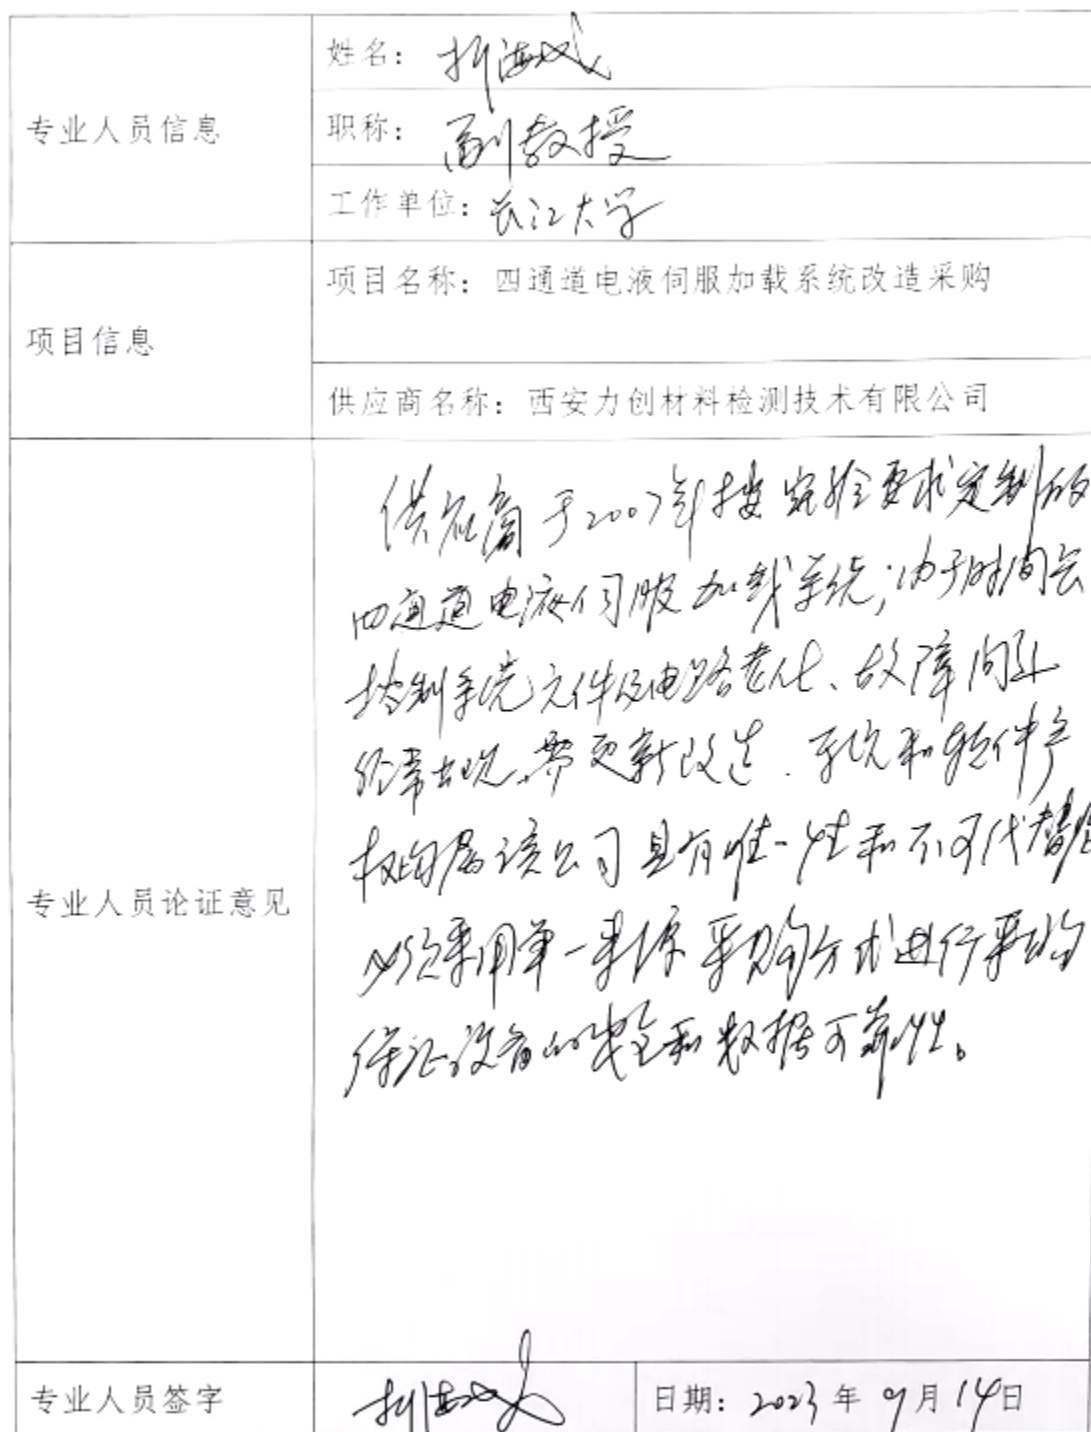 专业人员信息
姓名：
职称：副教授
工作单位：长江大学
项目信息
项目名称：四通道电液伺服加载系统改造采购
供应商名称：西安力创材料检测技术有限公司
专业人员论证意见
供应商于2007年按实验要求定制的
四通道电液伺服加载系统；由于时间长
控制系统元件及电路老化、故障问题
经常出现，需更新改造．系统和软件产
权均属该公司具有唯一性和不可代替性
必须采用单一来源采购方式进行采购
保证设备的安全和数据可靠性。
专业人员签字
日期：2023年9月14日